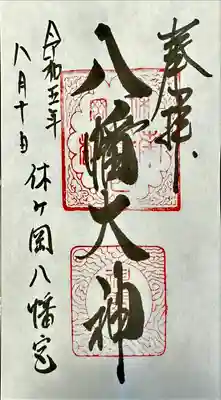 奉拝
八幡大神
令和五年
八月十日
休ケ岡八幡宮